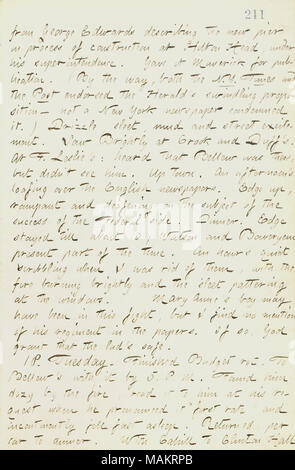 241
from George Edwards describing the new pier
in process of construction at Hilton Head under
his superintendence. Gave it Maverick for pub-
lication. (By the way, both the N.Y. Times and
the Post endorsed the Herald's swindling propo-
sition — not a New York newspaper condemned
it.) Drizzle, sleet, mud and street excite-
ment. Saw Brightly at Crook and Duff's.
At F. Leslie's: heard that Bellew was there,
but didn't see him. Up town. An afternoon's
loafing over the English newspapers. Edge up,
rampant and deafening on the subject of the
success of the Federal side. Dinner. Edge
stayed till about 10, Watson and
present, part of the time. An hour's quiet
scribbling when I was rid of them, with the
fire burning brightly and the sleet pattering
at the windows. Mary Anne's boy may
have been in this fight, but I find no mention
of his regiment in the papers. If so, God
grant that the lad's safe.
18. Tuesday. Finished Budget &c. To
Bellew's with it by 3 P.M. Found him
dozy by the fire, read to him at his re-
quest when he pronounced it first rate and
incontinently fell fast asleep. Returned, per
car to dinner. With Cahill to Clinton Hall
alamy
Image ID: MAKRPB
www.alamy.com